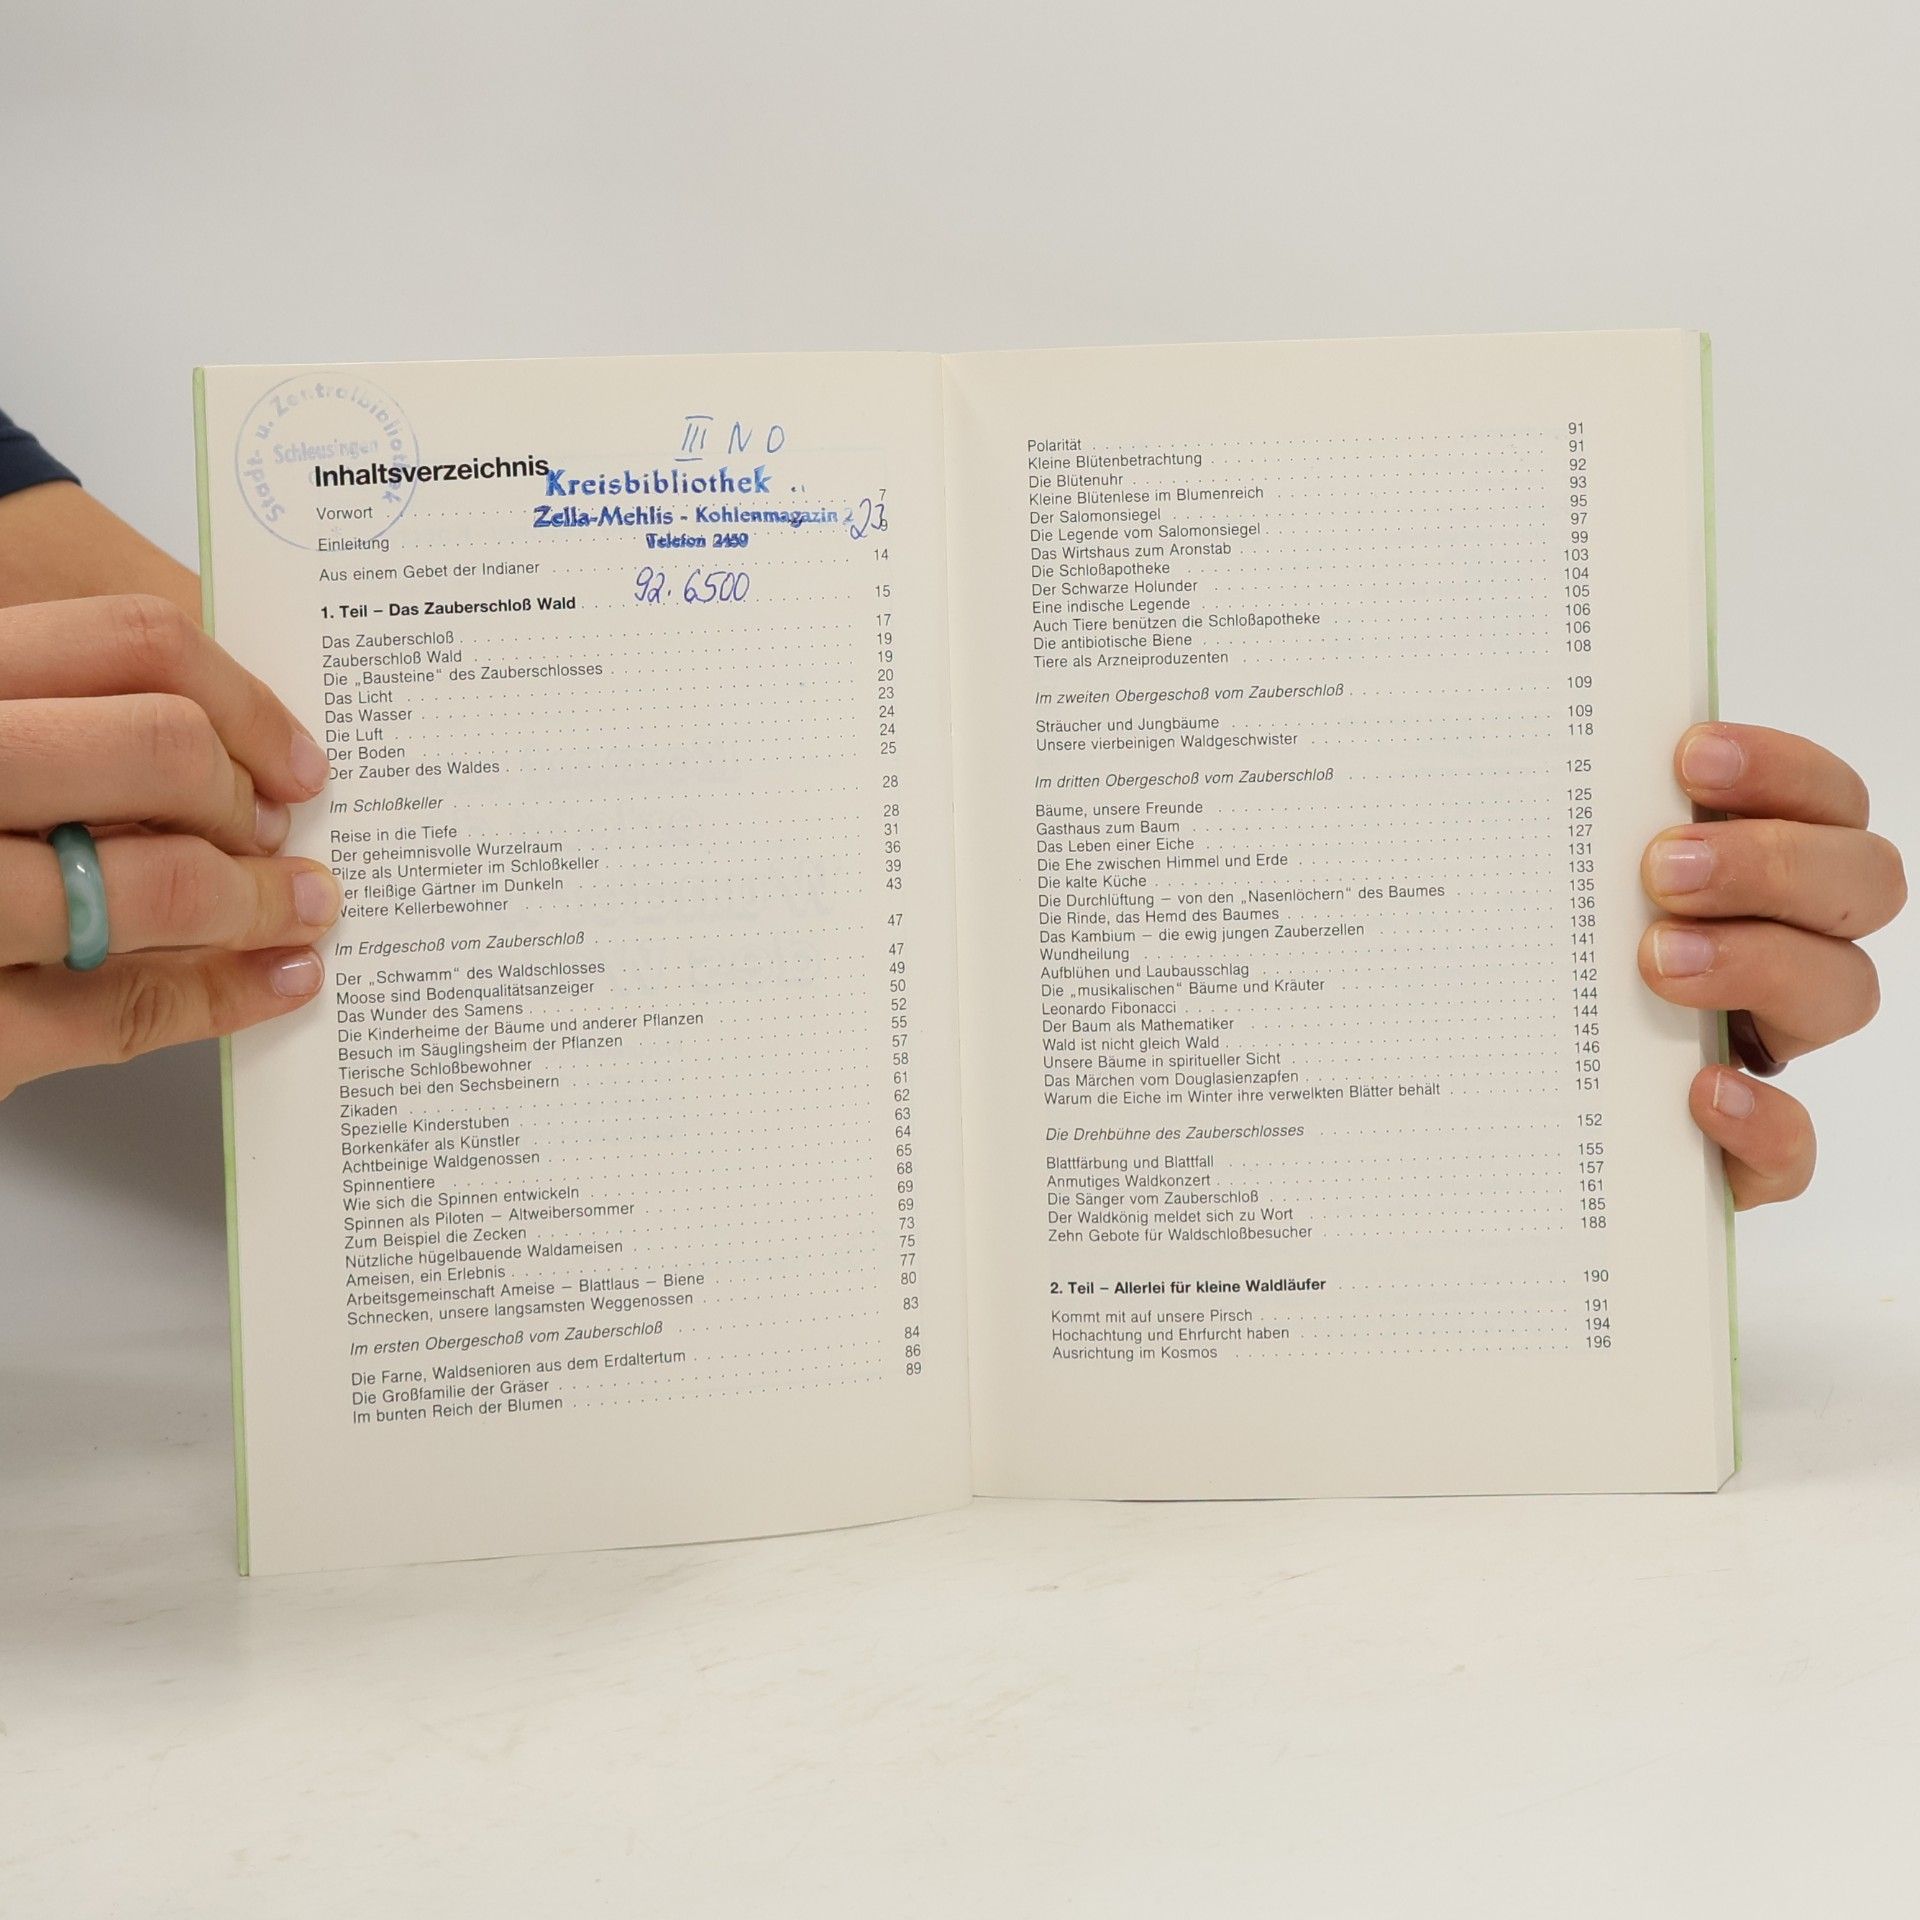 Stadt- u. Zentralbibliothek
Schleusingen
III N O
Inhaltsverzeichnis
Kreisbibliothek
Zella-Mehlis - Kohlenmagazin 23
Telefon 2459
92.6500
Vorwort . . . 7
Einleitung . . . 9
Aus einem Gebet der Indianer . . . 14
1. Teil – Das Zauberschloß Wald . . . 15
Das Zauberschloß . . . 17
Zauberschloß Wald . . . 19
Die „Bausteine“ des Zauberschlosses . . . 19
Das Licht . . . 20
Das Wasser . . . 23
Die Luft . . . 24
Der Boden . . . 24
Der Zauber des Waldes . . . 25
Im Schloßkeller . . . 28
Reise in die Tiefe . . . 28
Der geheimnisvolle Wurzelraum . . . 31
Pilze als Untermieter im Schloßkeller . . . 36
er fleißige Gärtner im Dunkeln . . . 39
Weitere Kellerbewohner . . . 43
Im Erdgeschoß vom Zauberschloß . . . 47
Der „Schwamm“ des Waldschlosses . . . 47
Moose sind Bodenqualitätsanzeiger . . . 49
Das Wunder des Samens . . . 50
Die Kinderheime der Bäume und anderer Pflanzen . . . 52
Besuch im Säuglingsheim der Pflanzen . . . 55
Tierische Schloßbewohner . . . 57
Besuch bei den Sechsbeinern . . . 58
Zikaden . . . 61
Spezielle Kinderstuben . . . 62
Borkenkäfer als Künstler . . . 63
Achtbeinige Waldgenossen . . . 64
Spinnentiere . . . 65
Wie sich die Spinnen entwickeln . . . 68
Spinnen als Piloten – Altweibersommer . . . 69
Zum Beispiel die Zecken . . . 69
Nützliche hügelbauende Waldameisen . . . 73
Ameisen, ein Erlebnis . . . 75
Arbeitsgemeinschaft Ameise – Blattlaus – Biene . . . 77
Schnecken, unsere langsamsten Weggenossen . . . 80
Im ersten Obergeschoß vom Zauberschloß . . . 83
Die Farne, Waldsenioren aus dem Erdaltertum . . . 84
Die Großfamilie der Gräser . . . 86
Im bunten Reich der Blumen . . . 89
Polarität . . . 91
Kleine Blütenbetrachtung . . . 91
Die Blütenuhr . . . 92
Kleine Blütenlese im Blumenreich . . . 93
Der Salomonsiegel . . . 95
Die Legende vom Salomonsiegel . . . 97
Das Wirtshaus zum Aronstab . . . 99
Die Schloßapotheke . . . 103
Der Schwarze Holunder . . . 104
Eine indische Legende . . . 105
Auch Tiere benützen die Schloßapotheke . . . 106
Die antibiotische Biene . . . 106
Tiere als Arzneiproduzenten . . . 108
Im zweiten Obergeschoß vom Zauberschloß . . . 109
Sträucher und Jungbäume . . . 109
Unsere vierbeinigen Waldgeschwister . . . 118
Im dritten Obergeschoß vom Zauberschloß . . . 125
Bäume, unsere Freunde . . . 125
Gasthaus zum Baum . . . 126
Das Leben einer Eiche . . . 127
Die Ehe zwischen Himmel und Erde . . . 131
Die kalte Küche . . . 133
Die Durchlüftung – von den „Nasenlöchern“ des Baumes . . . 135
Die Rinde, das Hemd des Baumes . . . 136
Das Kambium – die ewig jungen Zauberzellen . . . 138
Wundheilung . . . 141
Aufblühen und Laubausschlag . . . 141
Die „musikalischen“ Bäume und Kräuter . . . 142
Leonardo Fibonacci . . . 144
Der Baum als Mathematiker . . . 144
Wald ist nicht gleich Wald . . . 145
Unsere Bäume in spiritueller Sicht . . . 146
Das Märchen vom Douglasienzapfen . . . 150
Warum die Eiche im Winter ihre verwelkten Blätter behält . . . 151
Die Drehbühne des Zauberschlosses . . . 152
Blattfärbung und Blattfall . . . 155
Anmutiges Waldkonzert . . . 157
Die Sänger vom Zauberschloß . . . 161
Der Waldkönig meldet sich zu Wort . . . 185
Zehn Gebote für Waldschloßbesucher . . . 188
2. Teil – Allerlei für kleine Waldläufer . . . 190
Kommt mit auf unsere Pirsch . . . 191
Hochachtung und Ehrfurcht haben . . . 194
Ausrichtung im Kosmos . . . 196